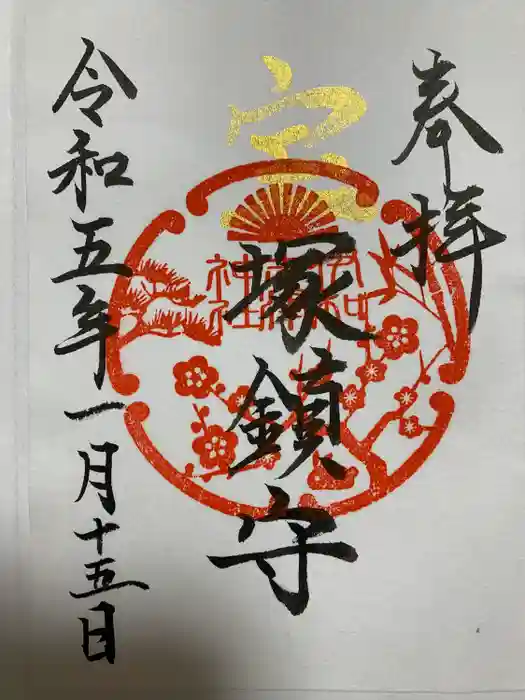 奉拝
宝塚鎮守
令和五年一月十五日